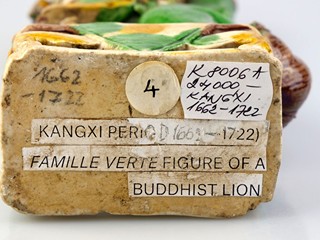 1662
- 1722
4
K8006A
24,000 -
KANGXI.
1662 - 1722
KANGXI PERIOD (1662 – 1722)
FAMILLE VERTE FIGURE OF A
BUDDHIST LION